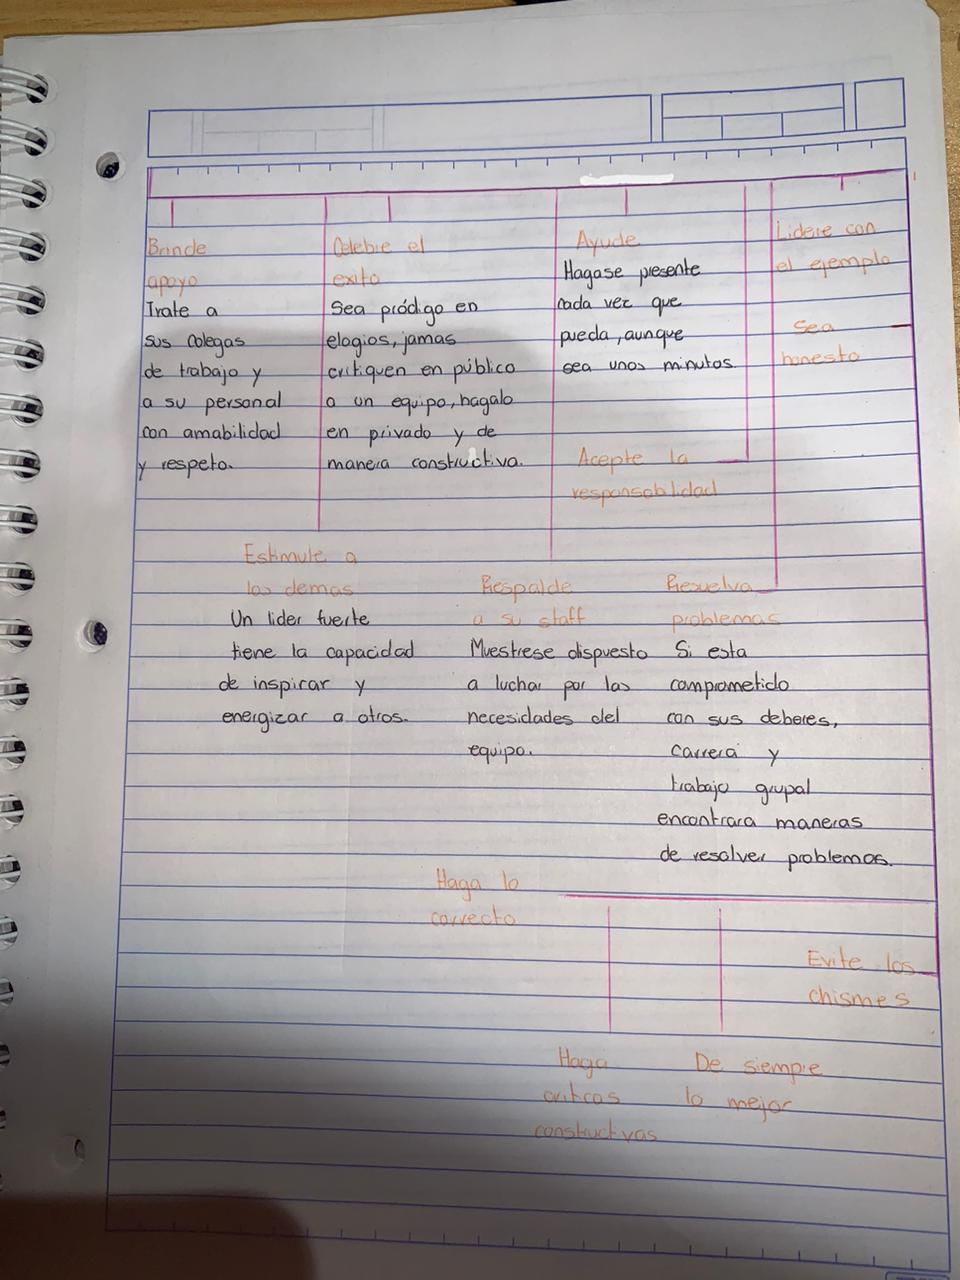 Brinde
apoyo
Trate a
sus colegas
de trabajo y
a su personal
con amabilidad
y respeto.
Celebre el
exito
Sea pródigo en
elogios, jamas
critiquen en público
a un equipo, hagalo
en privado y de
manera constructiva.
Ayude
Hagase presente
cada vez que
pueda, aunque
sea unos minutos.
Lidere con
el ejemplo
Sea
honesto
Acepte la
responsablidad
Estimule a
los demas
Un lider fuerte
tiene la capacidad
de inspirar y
energizar a otros.
Respalde
a su staff
Muestrese dispuesto
a luchar por las
necesidades del
equipo.
Resuelva
problemas
Si esta
comprometido
con sus deberes,
carrera y
trabajo grupal
encontrara maneras
de resolver problemas.
Haga lo
correcto
Evite los
chismes
Haga
critcas
constructvas
De siempre
lo mejor